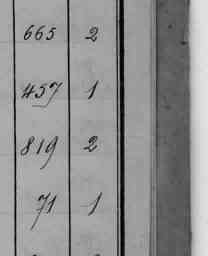 665 2
457 1
819 2
71 1